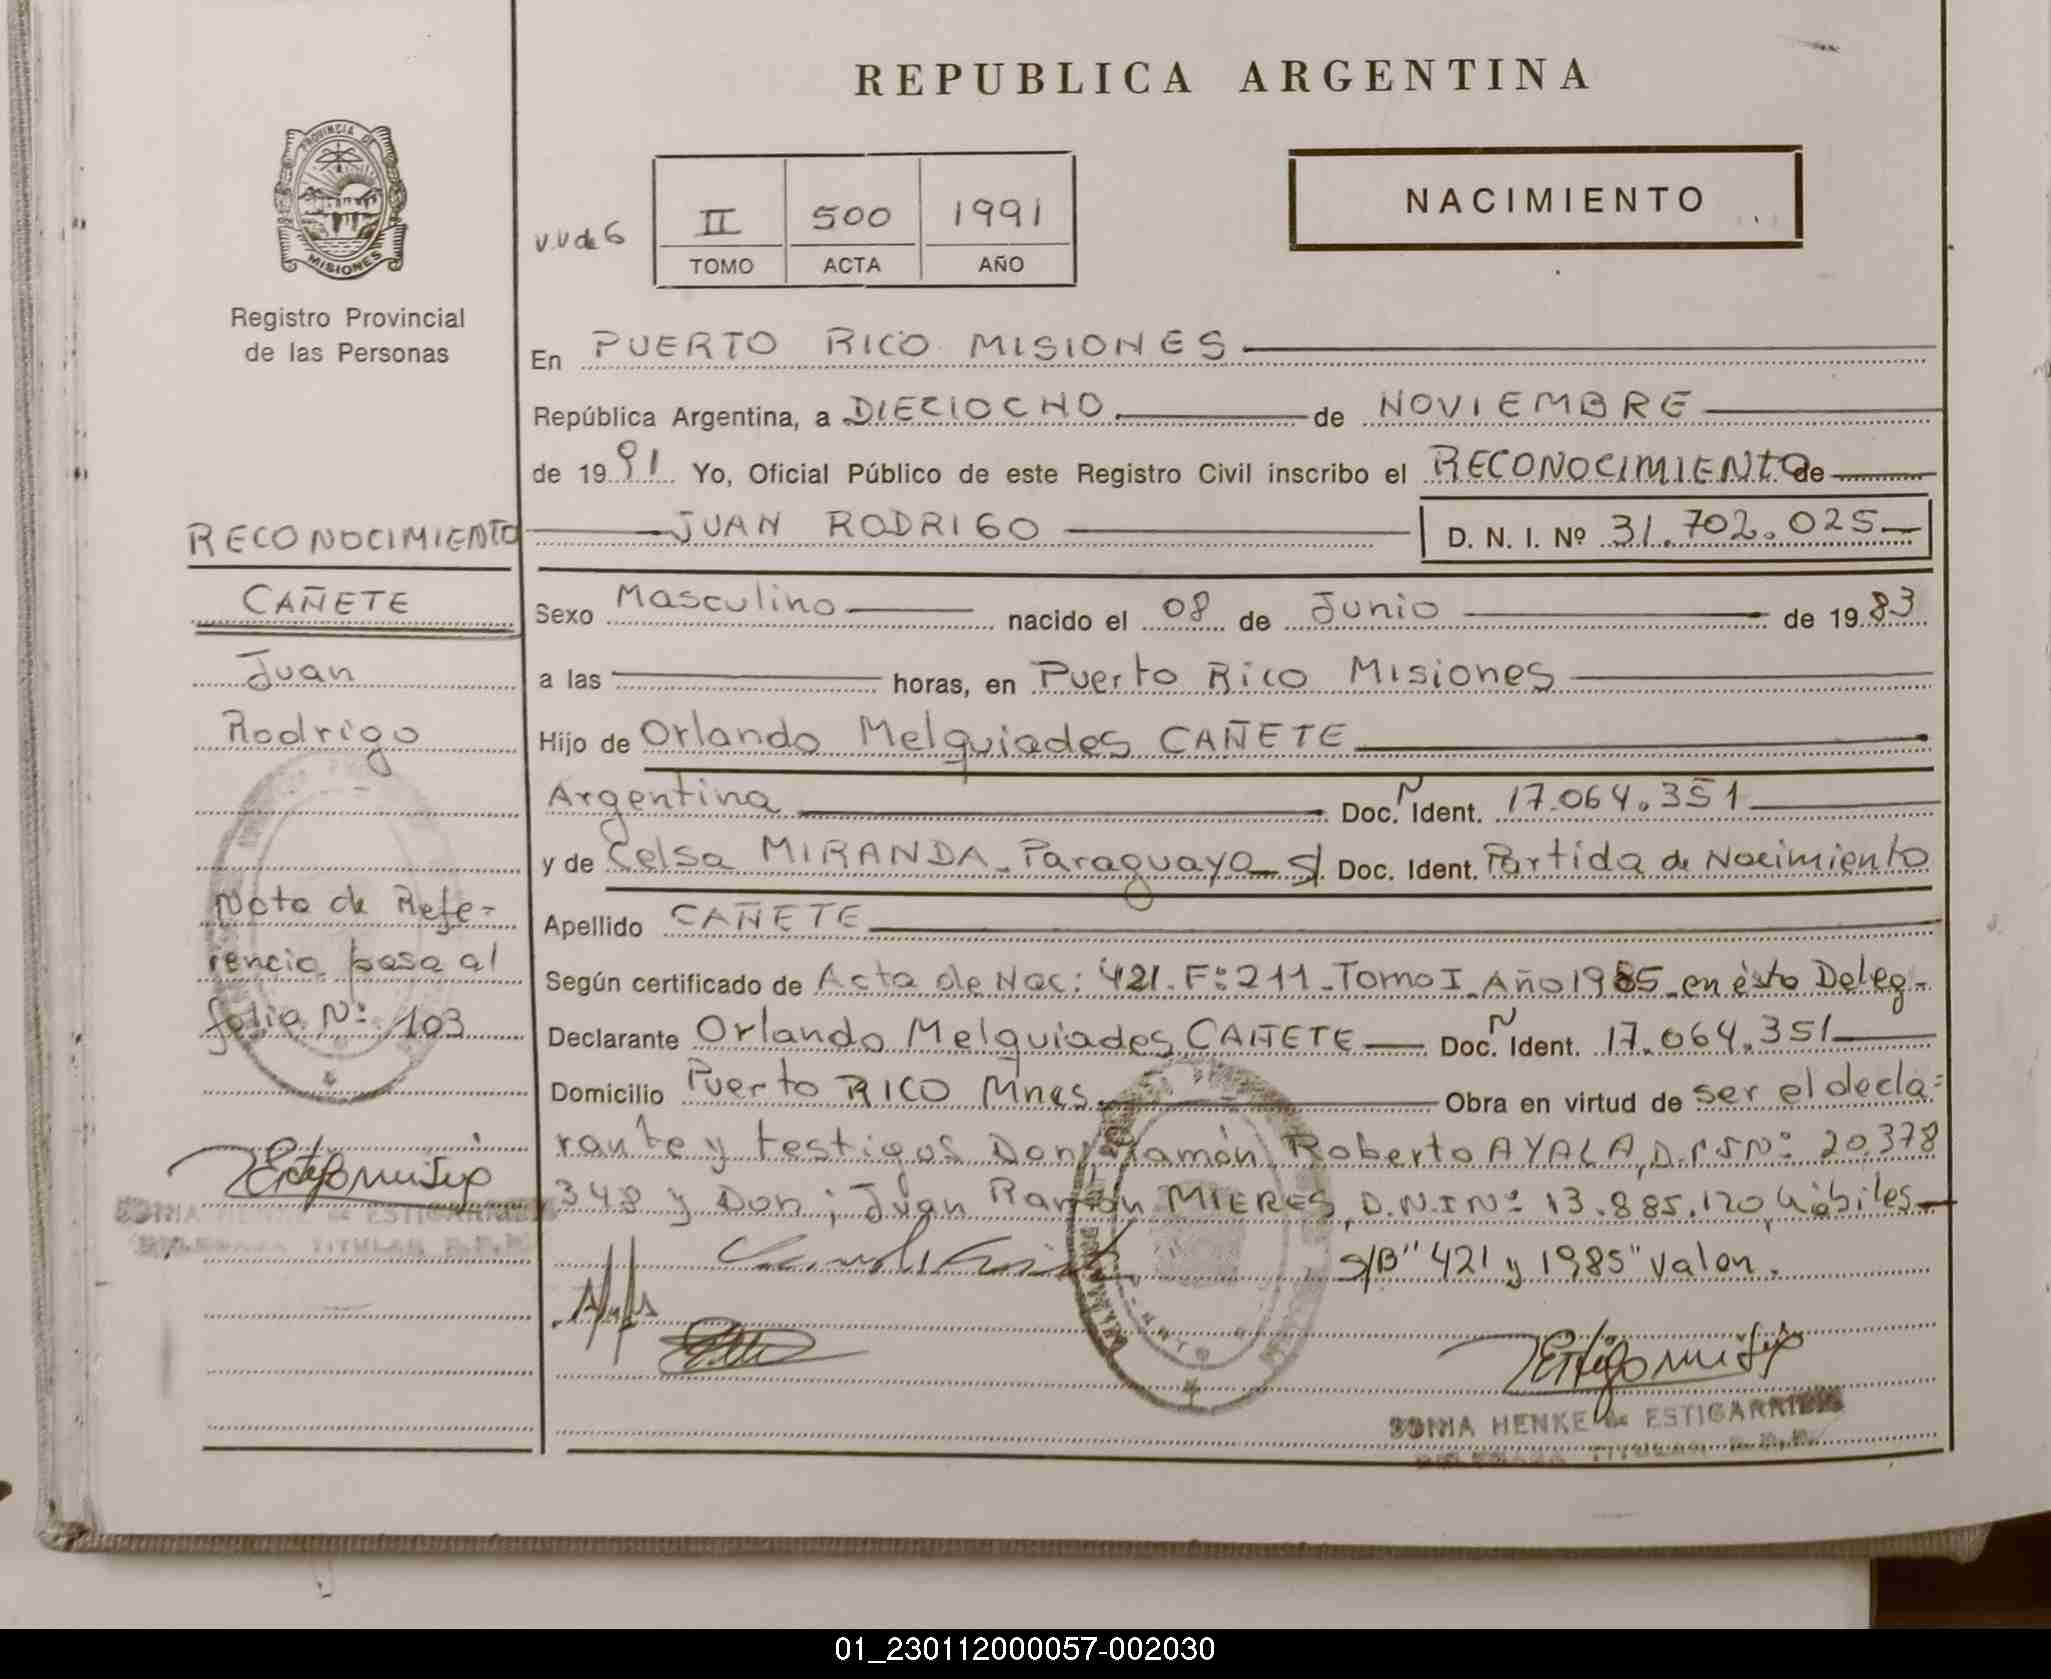 REPUBLICA ARGENTINA
PROVINCIA DE
MISIONES
Registro Provincial
de las Personas
NACIMIENTO
II 500 1991
TOMO ACTA AÑO
En PUERTO RICO MISIONES
República Argentina, a DIECIOCHO de NOVIEMBRE
de 1991 Yo, Oficial Público de este Registro Civil inscribo el RECONOCIMIENTO de
JUAN RODRIGO D. N. I. Nº 31.702.025
Sexo Masculino nacido el 08 de Junio de 1983
a las horas, en Puerto Rico Misiones
Hijo de Orlando Melquiades CAÑETE
Argentina Doc. N Ident. 17.064.351
y de Celsa MIRANDA - Paraguaya - s/ Doc. Ident. Partida de Nacimiento
Apellido CAÑETE
Según certificado de Acta de Nac: 421. F: 211 - Tomo I - Año 1985 - en ésta Deleg -
Declarante Orlando Melquiades CAÑETE Doc. N Ident. 17.064.351
Domicilio Puerto RICO Mnes. Obra en virtud de ser el decla=
rante y testigos Don Ramón Roberto AYALA, D.N.I Nº: 20.378
348 y Don; Juan Ramón MIERES, D.N.I Nº 13.885.120, hábiles -
s/B "421 y 1985" valen.
SONIA HENKE de ESTIGARRIBIA
RECONOCIMIENTO
CAÑETE
Juan
Rodrigo
Nota de Refe-
rencia pasa al
folio Nº: 103
SONIA HENKE de ESTIGARRIBIA
01_230112000057-002030